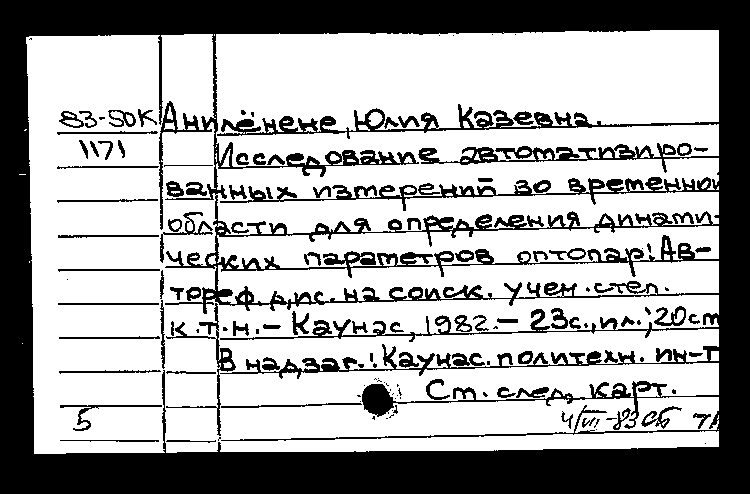 83-50К Анилёнене, Юлия Казевна.
1171 Исследование автоматизиро-
ванных измерений во временной
области для определения динами-
ческих параметров оптопар: Ав-
тореф. дис. на соиск. учен. степ.
к.т.н. - Каунас, 1982. - 23с., ил.; 20см
В надзаг.: Каунас. политехн. ин-т
Ст. след. карт.
5 4/VII-83 СБ